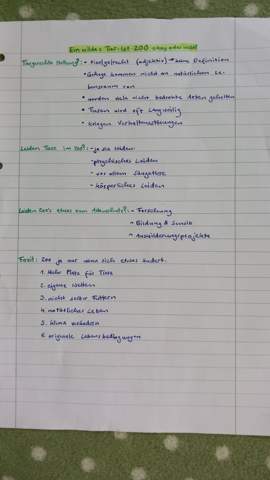 Ein wildes Tier ist ZOO okay oder nicht?
Tiergerechte Haltung?: • (Adjektiv) → keine Definition
• Gehege kommen nicht an natürlichen Le-
bensraum ran
• werden viele nicht bedrohte Arten gehalten
• Tieren wird oft langweilig
• kriegen Verhaltensstörungen
Leiden Tiere im Zoo?: - ja sie leiden
- psychisches Leiden
- vor allem Säugetiere
- körperliches Leiden
Leisten Zoo's etwas zum Artenschutz?: - Forschung
- Bildung &
- Auswilderungsprojekte
Fazit: Zoo ja nur wenn sich etwas ändert.
1. Mehr Platz für Tiere
2. eigene Welten
3. nicht selber füttern
4. natürliches Leben
5. Klima verändern
6. originale Lebensbedingungen